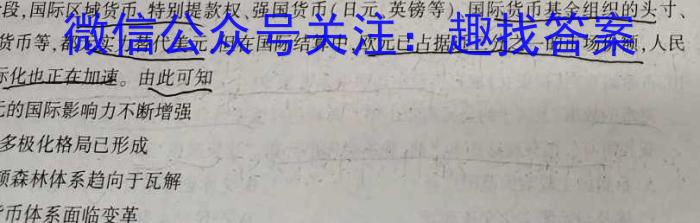 段,国际区域货币、特别提款权、强国货币(日元、英镑等)、国际货币基金组织的头寸、
微信公众号关注:趣找答案
货币等,都在实力替代美元,但在国际结算中,欧元已占据三分之一的市场份额,人民
际化也正在加速。由此可知
元的国际影响力不断增强
多极化格局已形成
顿森林体系趋向于瓦解
货币体系面临变革